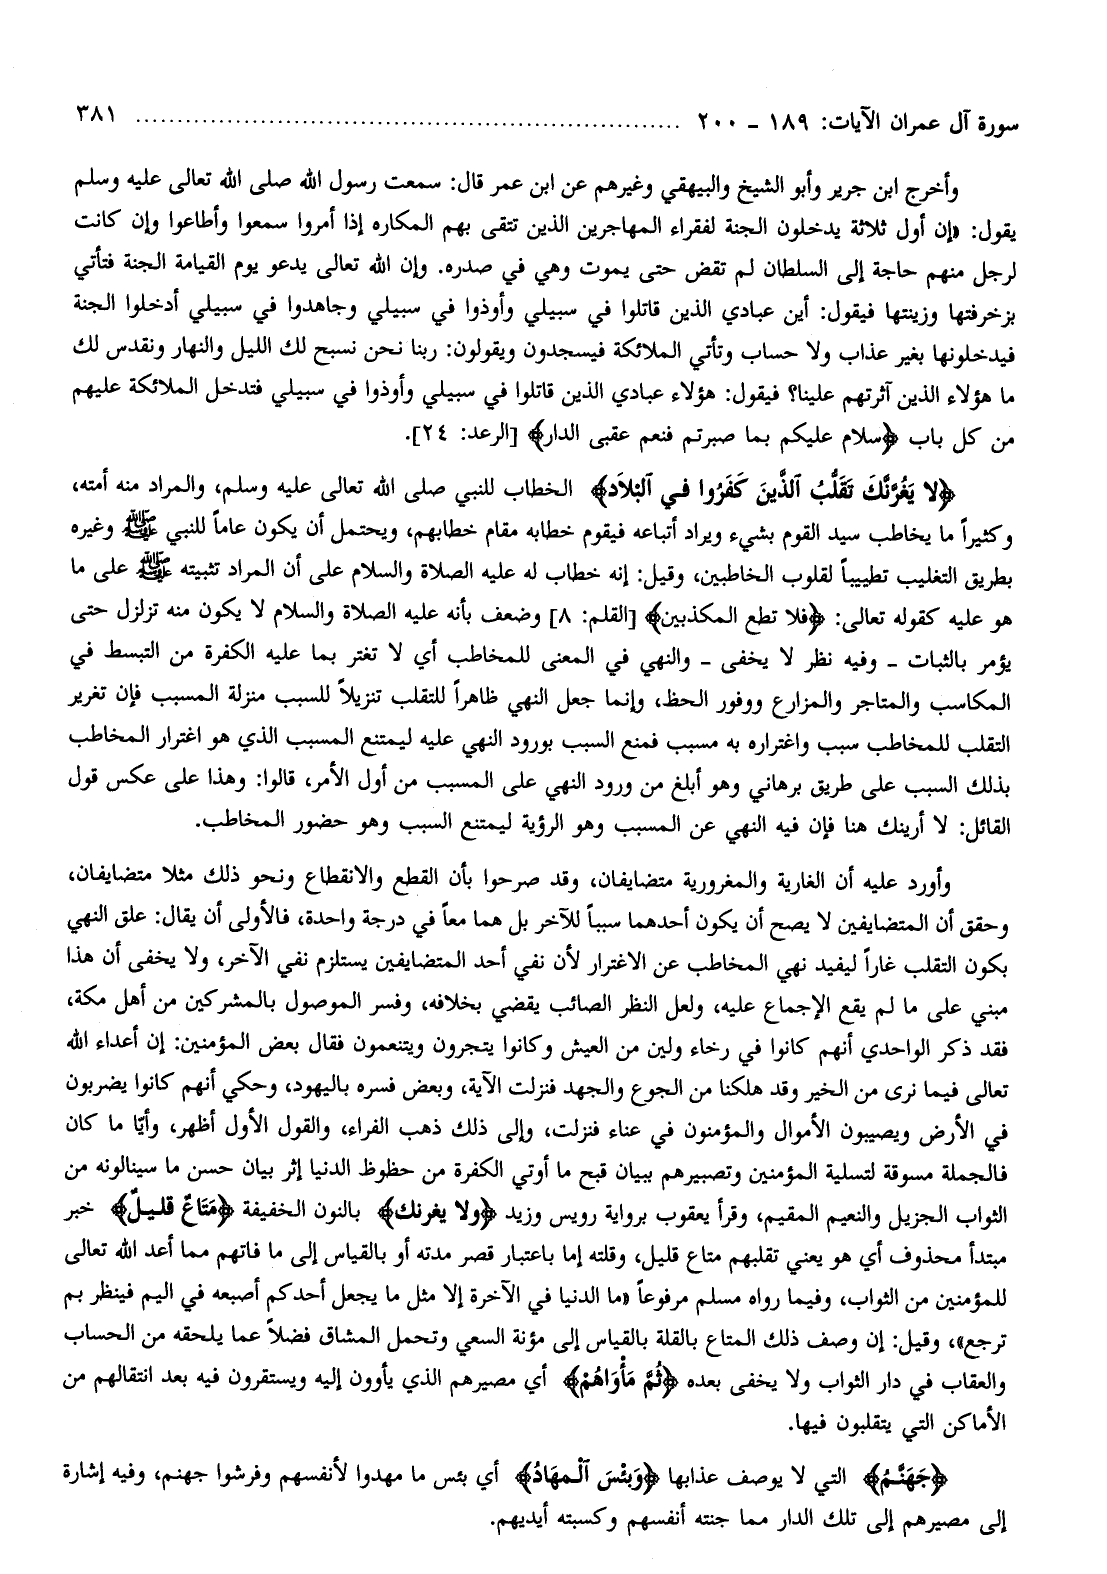 سورة آل عمران الآيات: ١٨٩ ـ ٢٠٠ ........................................................ ٣٨١
وأخرج ابن جرير وأبو الشيخ والبيهقي وغيرهم عن ابن عمر قال: سمعت رسول الله صلى الله تعالى عليه وسلم
يقول: «إن أول ثلاثة يدخلون الجنة لفقراء المهاجرين الذين تتقى بهم المكاره إذا أمروا سمعوا وأطاعوا وإن كانت
لرجل منهم حاجة إلى السلطان لم تقض حتى يموت وهي في صدره. وإن الله تعالى يدعو يوم القيامة الجنة فتأتي
بزخرفتها وزينتها فيقول: أين عبادي الذين قاتلوا في سبيلي وأوذوا في سبيلي وجاهدوا في سبيلي أدخلوا الجنة
فيدخلونها بغير عذاب ولا حساب وتأتي الملائكة فيسجدون ويقولون: ربنا نحن نسبح لك الليل والنهار ونقدس لك
ما هؤلاء الذين آثرتهم علينا؟ فيقول: هؤلاء عبادي الذين قاتلوا في سبيلي وأوذوا في سبيلي فتدخل الملائكة عليهم
من كل باب ﴿سلام عليكم بما صبرتم فنعم عقبى الدار﴾ [الرعد: ٢٤].
﴿لا يَغُرَّنَّكَ تَقَلُّبُ ٱلَّذينَ كَفَرُوا في ٱلبْلاَد﴾ الخطاب للنبي صلى الله تعالى عليه وسلم، والمراد منه أمته،
وكثيراً ما يخاطب سيد القوم بشيء ويراد أتباعه فيقوم خطابه مقام خطابهم، ويحتمل أن يكون عاماً للنبي ﷺ وغيره
بطريق التغليب تطييباً لقلوب الخاطبين، وقيل: إنه خطاب له عليه الصلاة والسلام على أن المراد تثبيته ﷺ على ما
هو عليه كقوله تعالى: ﴿فلا تطع المكذبين﴾ [القلم: ٨] وضعف بأنه عليه الصلاة والسلام لا يكون منه تزلزل حتى
يؤمر بالثبات ـ وفيه نظر لا يخفى ـ والنهي في المعنى للمخاطب أي لا تغتر بما عليه الكفرة من التبسط في
المكاسب والمتاجر والمزارع ووفور الحظ، وإنما جعل النهي ظاهراً للتقلب تنزيلاً للسبب منزلة المسبب فإن تغرير
التقلب للمخاطب سبب واغتراره به مسبب فمنع السبب بورود النهي عليه ليمتنع المسبب الذي هو اغترار المخاطب
بذلك السبب على طريق برهاني وهو أبلغ من ورود النهي على المسبب من أول الأمر، قالوا: وهذا على عكس قول
القائل: لا أرينك هنا فإن فيه النهي عن المسبب وهو الرؤية ليمتنع السبب وهو حضور المخاطب.
وأورد عليه أن الغارية والمغرورية متضايفان، وقد صرحوا بأن القطع والانقطاع ونحو ذلك مثلا متضايفان،
وحقق أن المتضايفين لا يصح أن يكون أحدهما سبباً للآخر بل هما معاً في درجة واحدة، فالأولى أن يقال: علق النهي
بكون التقلب غاراً ليفيد نهي المخاطب عن الاغترار لأن نفي أحد المتضايفين يستلزم نفي الآخر، ولا يخفى أن هذا
مبني على ما لم يقع الإجماع عليه، ولعل النظر الصائب يقضي بخلافه، وفسر الموصول بالمشركين من أهل مكة،
فقد ذكر الواحدي أنهم كانوا في رخاء ولين من العيش وكانوا يتجرون ويتنعمون فقال بعض المؤمنين: إن أعداء الله
تعالى فيما نرى من الخير وقد هلكنا من الجوع والجهد فنزلت الآية، وبعض فسره باليهود، وحكي أنهم كانوا يضربون
في الأرض ويصيبون الأموال والمؤمنون في عناء فنزلت، وإلى ذلك ذهب الفراء، والقول الأول أظهر، وأيّا ما كان
فالجملة مسوقة لتسلية المؤمنين وتصبيرهم ببيان قبح ما أوتي الكفرة من حظوظ الدنيا إثر بيان حسن ما سينالونه من
الثواب الجزيل والنعيم المقيم، وقرأ يعقوب برواية رويس وزيد ﴿ولا يغرنك﴾ بالنون الخفيفة ﴿مَتَاعٌ قليلٌ﴾ خبر
مبتدأ محذوف أي هو يعني تقلبهم متاع قليل، وقلته إما باعتبار قصر مدته أو بالقياس إلى ما فاتهم مما أعد الله تعالى
للمؤمنين من الثواب، وفيما رواه مسلم مرفوعاً «ما الدنيا في الآخرة إلا مثل ما يجعل أحدكم أصبعه في اليم فينظر بم
ترجع»، وقيل: إن وصف ذلك المتاع بالقلة بالقياس إلى مؤنة السعي وتحمل المشاق فضلاً عما يلحقه من الحساب
والعقاب في دار الثواب ولا يخفى بعده ﴿ثُمَّ مَأْوَاهُمْ﴾ أي مصيرهم الذي يأوون إليه ويستقرون فيه بعد انتقالهم من
الأماكن التي يتقلبون فيها.
﴿جَهَنَّمُ﴾ التي لا يوصف عذابها ﴿وَبئْسَ ٱلْمهَادُ﴾ أي بئس ما مهدوا لأنفسهم وفرشوا جهنم، وفيه إشارة
إلى مصيرهم إلى تلك الدار مما جنته أنفسهم وكسبته أيديهم.